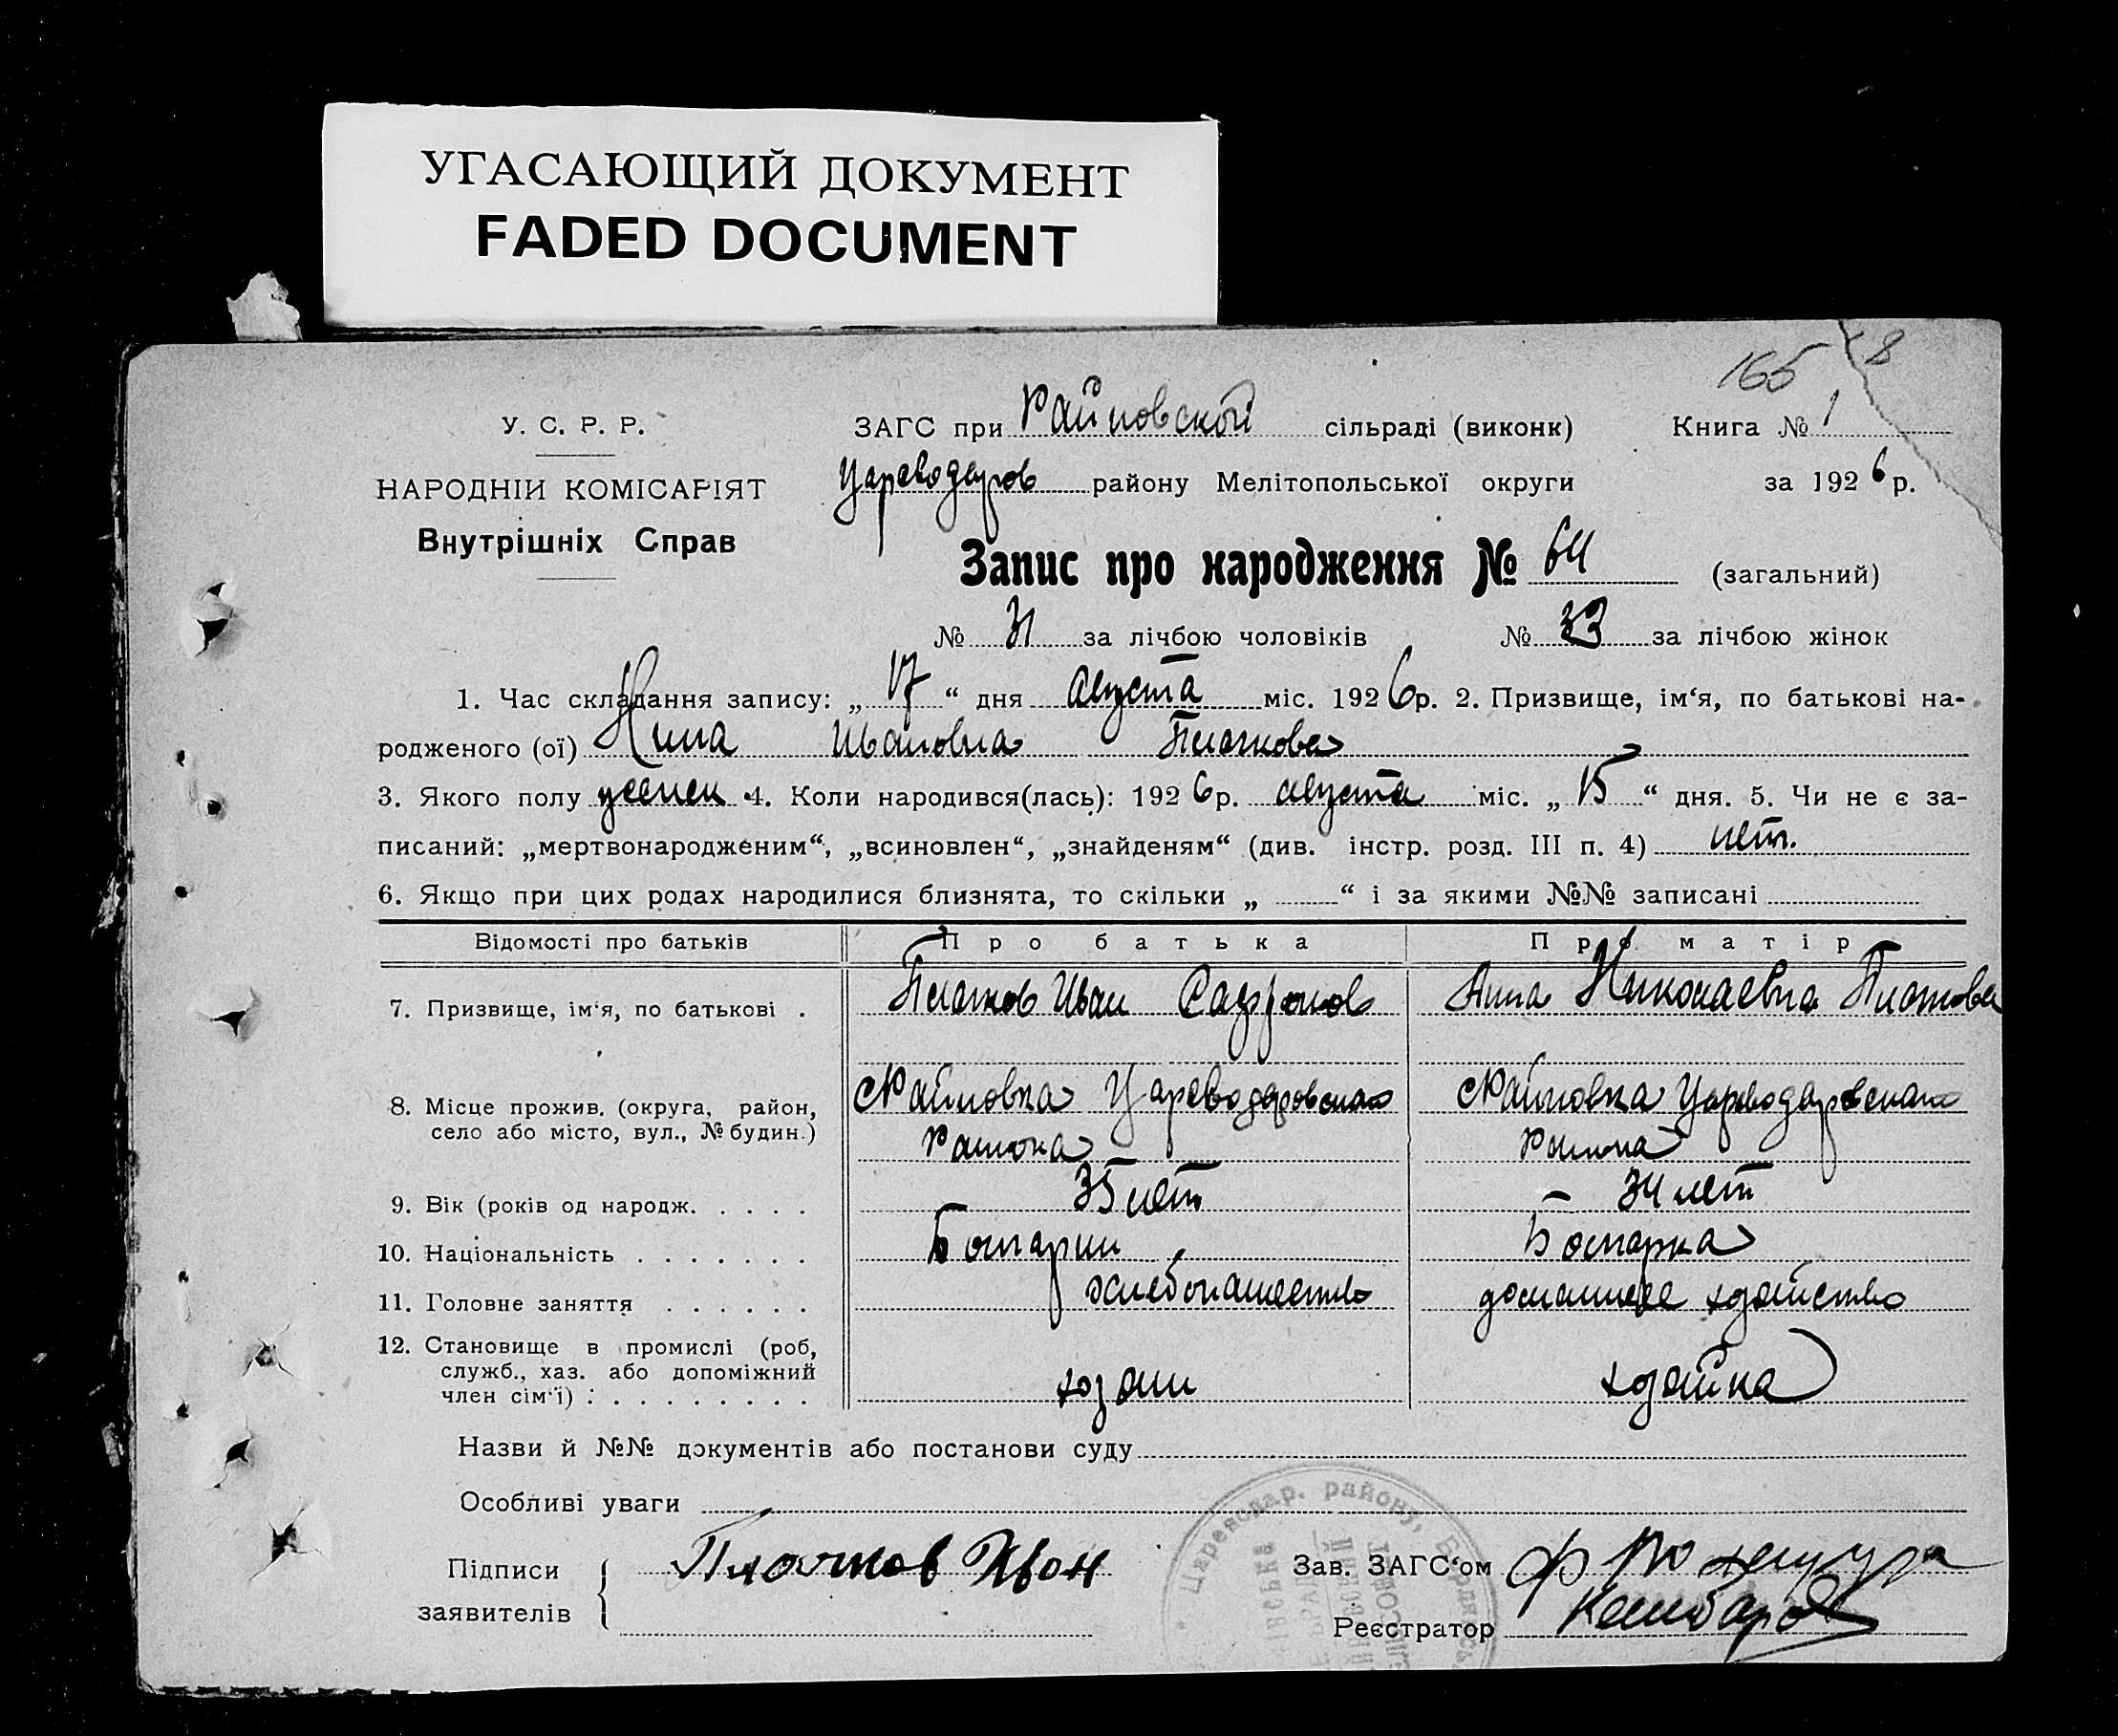 УГАСАЮЩИЙ ДОКУМЕНТ
FADED DOCUMENT
165 8
У. С. Р. Р. ЗАГС при Райновской сільраді (виконк) Книга № 1
НАРОДНІЙ КОМІСАРІЯТ Цареводаров району Мелітопольської округи за 1926 р.
Внутрішніх Справ
Запис про народження № 64 (загальний)
№ 31 за лічбою чоловіків № 33 за лічбою жінок
1. Час складання запису: „17“ дня Августа міс. 1926р. 2. Призвище, ім‘я, по батькові на-
родженого (ої) Нина Ивановна Плачкова
3. Якого полу 4. Коли народився(лась): 1926р. августа міс. „15“ дня. 5. Чи не є за-
писаний: „мертвонародженим“, „всиновлен“, „знайденям“ (див. інстр. розд. III п. 4) нет.
6. Якщо при цих родах народилися близнята, то скільки „ “ і за якими №№ записані
Відомості про батьків Про батька Про матір
7. Призвище, ім‘я, по батькові . Плачков Иван Сафронов Анна Николаевна Плачкова
8. Місце прожив. (округа, район, с Райновка Цареводаровскаго с Райновка Цареводаровскаго
село або місто, вул., № будин.) Района Района
9. Вік (років од народж. . . . . 35 лет 34 лет
10. Національність . . . . . . . Болгарин Болгарка
11. Головне заняття . . . . . . хлебопашество домашнее хозяйство
12. Становище в промислі (роб,
служб., хаз. або допоміжний
член сім‘ї) : . . . . . . . . . хозяин хозяйка
Назви й №№ документів або постанови суду
Особливі уваги
Цареводар. району, Бердянсь
Підписи Плачков Иван Зав. ЗАГС‘ом
заявителів Реєстратор